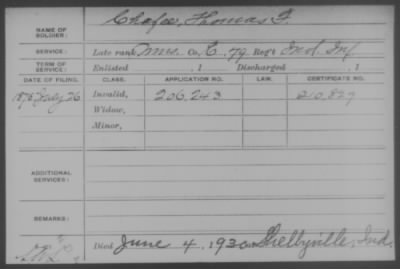 NAME OF SOLDIER: Chafee, Thomas F.
SERVICE: Late rank, Co. E, 79 Reg't Ind. Inf.
TERM OF SERVICE: Enlisted , 1 Discharged , 1
DATE OF FILING. CLASS. APPLICATION NO. LAW. CERTIFICATE NO.
1875 July 26 Invalid, 206,243 210,827
Widow,
Minor,
ADDITIONAL SERVICES:
REMARKS:
Died June 4, 1930 Shelbyville, Ind.